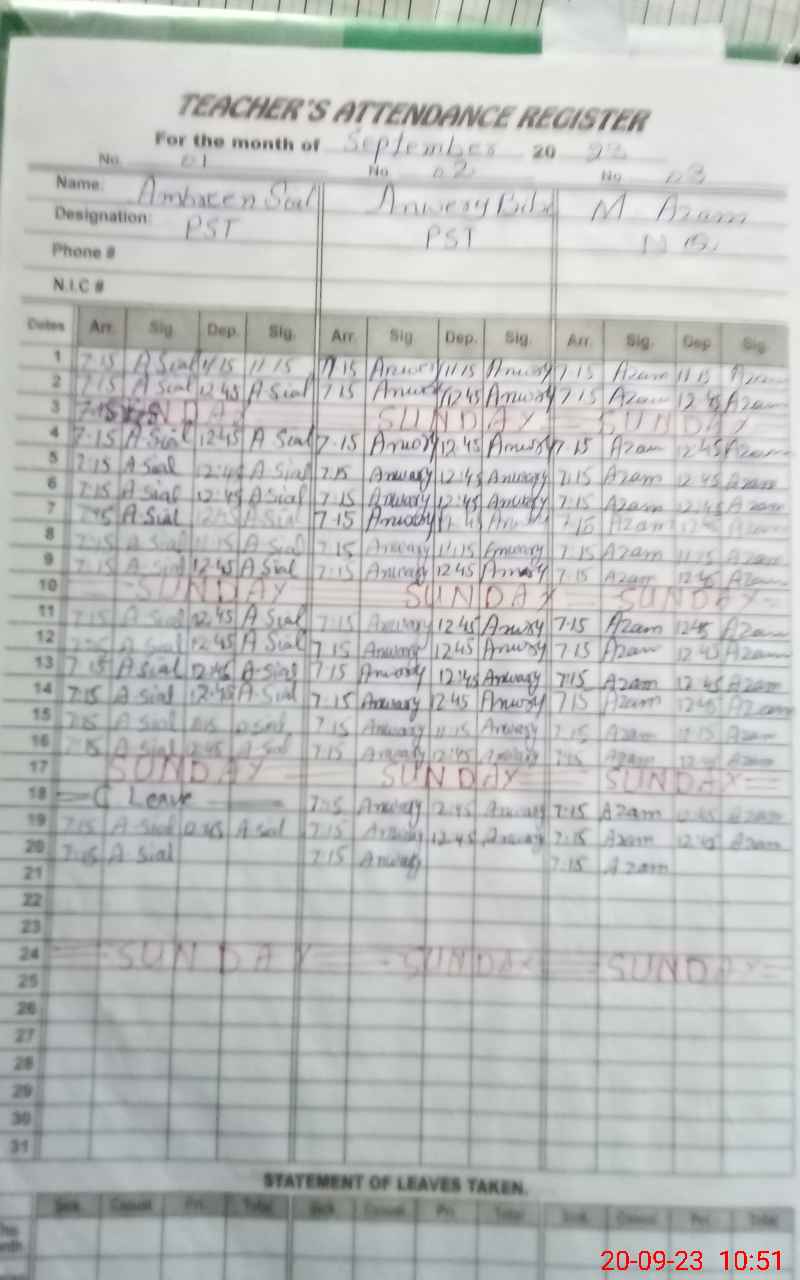 TEACHER'S ATTENDANCE REGISTER
For the month of September 20 23
No. 01 No 02 No 03
Name: Ambreen Sial M Azam
Designation: PST PST
Phone #
N.I.C #
Dates Arr. Sig. Dep. Sig. Arr. Sig. Dep. Sig. Arr. Sig. Dep Sig.
1 7:15 A Sial 11:15 11:15 7:15 Anwary 11:15 Anwary 7:15 Azam 11:15 Azam
2 7:15 A Sial 12:45 A Sial 7:15 Anwary 12:45 Anwary 7:15 Azam 12:45 Azam
3 7:15 SUNDAY SUNDAY
4 7:15 A Sial 12:45 A Sial 7:15 Anwary 12:45 Anwary 7:15 Azam 12:45 Azam
5 7:15 A Sial 12:45 A Sial 7:15 Anwary 12:45 Anwary 7:15 Azam 12:45 Azam
6 7:15 A Sial 12:45 A Sial 7:15 Anwary 12:45 Anwary 7:15 Azam 12:45 Azam
7 A Sial 12:45 A Sial 7:15 Anwary Azam Azam
8 7:15 A Sial 11:15 A Sial 7:15 Anwary 11:15 Anwary 7:15 Azam 11:15 Azam
9 7:15 A Sial 12:45 A Sial 7:15 Anwary 12:45 Anwary 7:15 Azam 12:45 Azam
10 SUNDAY SUNDAY SUNDAY
11 7:15 A Sial 12:45 A Sial 7:15 Anwary 12:45 Anwary 7:15 Azam 12:45 Azam
12 7:15 A Sial 12:45 A Sial 7:15 Anwary 12:45 Anwary 7:15 Azam 12:45 Azam
13 7:15 A Sial 12:45 A Sial 7:15 Anwary 12:45 Anwary 7:15 Azam 12:45 Azam
14 7:15 A Sial 12:45 A Sial 7:15 Anwary 12:45 Anwary 7:15 Azam 12:45 Azam
15 7:15 A Sial 11:15 A Sial 7:15 Anwary 11:15 Anwary 7:15 Azam 11:15 Azam
16 7:15 A Sial 12:45 A Sial 7:15 Anwary 12:45 Anwary 7:15 Azam 12:45 Azam
17 SUNDAY SUNDAY SUNDAY
18 C Leave 7:15 Anwary 12:45 Anwary 7:15 Azam 12:45 Azam
19 7:15 A Sial 12:45 A Sial 7:15 Anwary 12:45 Anwary 7:15 Azam 12:45 Azam
20 7:15 A Sial 7:15 Anwary 7:15 Azam
21
22
23
24 SUNDAY SUNDAY SUNDAY
25
26
27
28
29
30
31
STATEMENT OF LEAVES TAKEN.
Sick. Casual Pri. Total Sick. Casual Pri. Total Sick. Casual Pri. Total
20-09-23 10:51